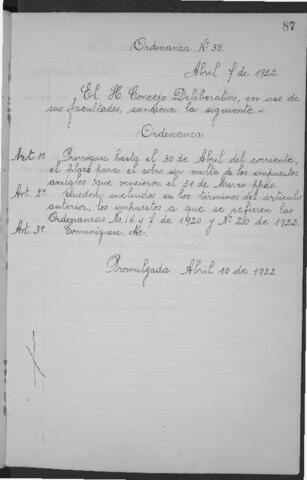 87
Ordenanza Nº 35.
Abril 7 de 1922.
El H. Concejo Deliberativo, en uso de
sus facultades, sanciona la siguiente -
Ordenanza
Art. 1º Prorrógase hasta el 30 de Abril del corriente,
el plazo para el cobro sin multa de los impuestos
que vencieron el 31 de Marzo ppdo.
Art. 2º Quedan incluidos en los términos del artículo
anterior, los impuestos a que se refieren las
Ordenanzas No. 14 y 7 de 1920 y Nº 20 de 1922.
Art. 3º Comuníquese, etc.
Promulgada: Abril 10 de 1922.